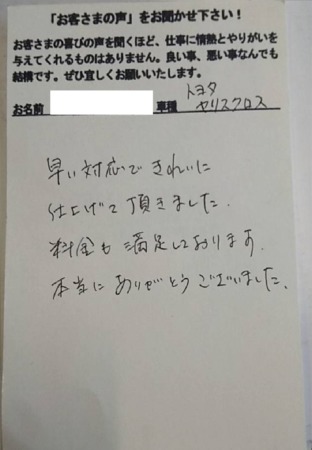 「お客さまの声」をお聞かせ下さい！
お客さまの喜びの声を聞くほど、仕事に情熱とやりがいを
与えてくれるものはありません。良い事、悪い事なんでも
結構です。ぜひ宜しくお願いいたします。
お名前 車種 トヨタ ヤリスクロス
早い対応できれいに
仕上げて頂きました.
料金も満足しております.
本当にありがとうございました.